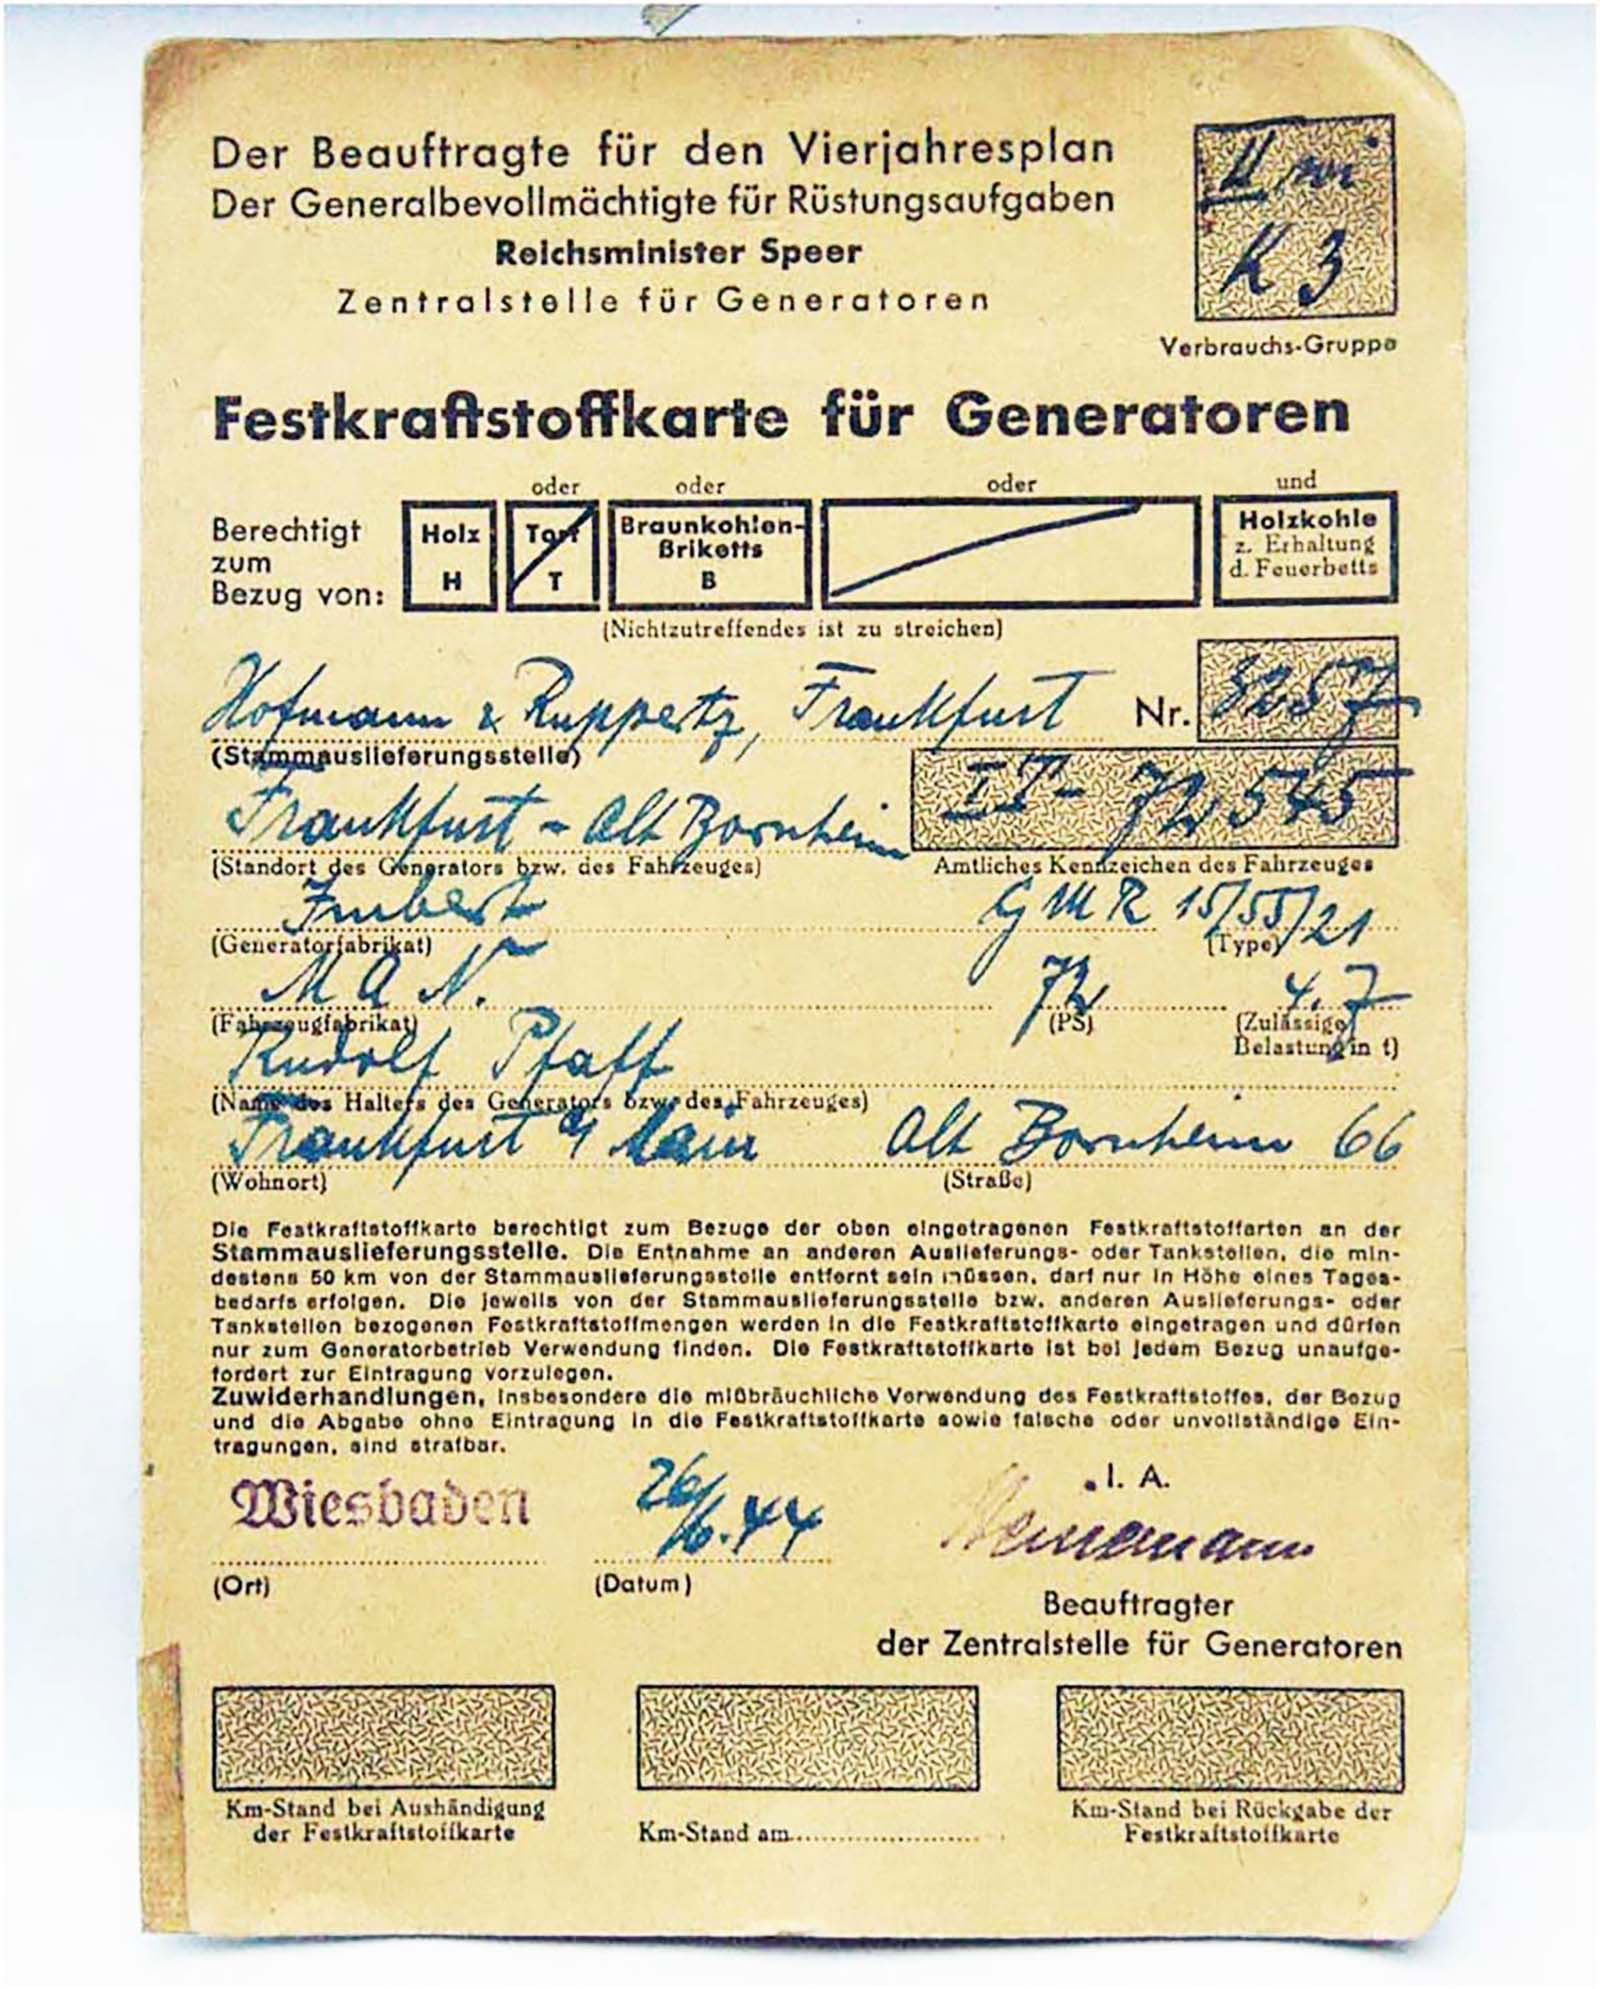 Der Beauftragte für den Vierjahresplan
Der Generalbevollmächtigte für Rüstungsaufgaben
Reichsminister Speer
Zentralstelle für Generatoren
K 3
Verbrauchs-Gruppe
Festkraftstoffkarte für Generatoren
oder oder oder und
Berechtigt zum Bezug von:
Holz H
Torf T
Braunkohlen-Briketts B
Holzkohle z. Erhaltung d. Feuerbetts
(Nichtzutreffendes ist zu streichen)
Hofmann & Ruppertz, Frankfurt Nr. 3257
(Stammauslieferungsstelle)
Frankfurt - Alt Bornheim IT- 72545
(Standort des Generators bzw. des Fahrzeuges) Amtliches Kennzeichen des Fahrzeuges
Imbert GMR 15/55/21
(Generatorfabrikat) (Type)
M A N. 72 4.7
(Fahrzeugfabrikat) (PS) (Zulässige Belastung in t)
Rudolf Pfaff
(Name des Halters des Generators bzw. des Fahrzeuges)
Frankfurt a/Main Alt Bornheim 66
(Wohnort) (Straße)
Die Festkraftstoffkarte berechtigt zum Bezuge der oben eingetragenen Festkraftstoffarten an der
Stammauslieferungsstelle. Die Entnahme an anderen Auslieferungs- oder Tankstellen, die min-
destens 50 km von der Stammauslieferungsstelle entfernt sein müssen, darf nur in Höhe eines Tages-
bedarfs erfolgen. Die jeweils von der Stammauslieferungsstelle bzw. anderen Auslieferungs- oder
Tankstellen bezogenen Festkraftstoffmengen werden in die Festkraftstoffkarte eingetragen und dürfen
nur zum Generatorbetrieb Verwendung finden. Die Festkraftstoffkarte ist bei jedem Bezug unaufge-
fordert zur Eintragung vorzulegen.
Zuwiderhandlungen, insbesondere die mißbräuchliche Verwendung des Festkraftstoffes, der Bezug
und die Abgabe ohne Eintragung in die Festkraftstoffkarte sowie falsche oder unvollständige Ein-
tragungen, sind strafbar.
Wiesbaden 26/6.44 I. A.
(Ort) (Datum)
Beauftragter
der Zentralstelle für Generatoren
Km-Stand bei Aushändigung der Festkraftstoffkarte
Km-Stand am
Km-Stand bei Rückgabe der Festkraftstoffkarte